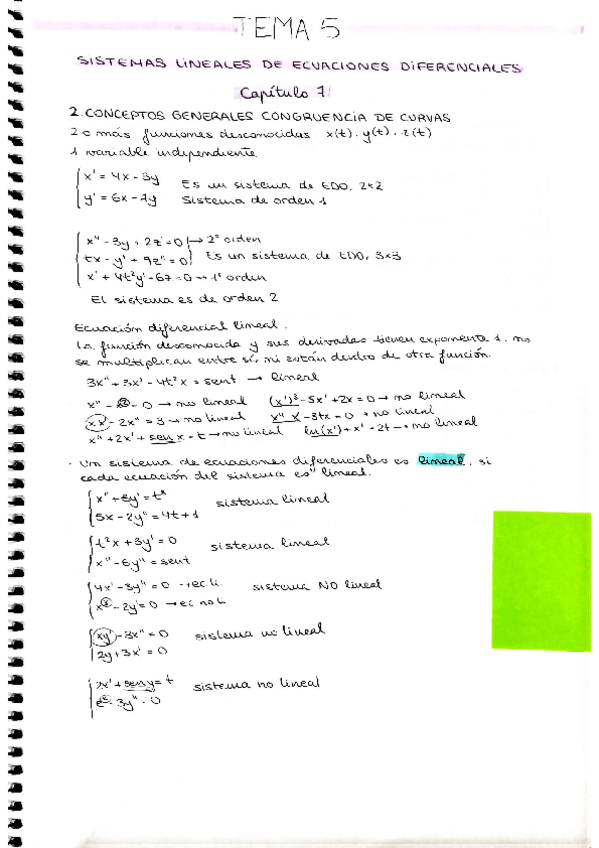 TEMA 5
SISTEMAS LINEALES DE ECUACIONES DIFERENCIALES
Capítulo 7
2. CONCEPTOS GENERALES CONGRUENCIA DE CURVAS
2 o más funciones desconocidas x(t). y(t). z(t)
1 variable independiente
x' = 4x - 3y Es un sistema de EDO, 2x2
y' = 6x - 7y Sistema de orden 1
x" - 3y + 2z' = 0 → 2º orden
tx - y' + 9z" = 0 Es un sistema de EDO, 3x3
x' + 4t²y' - 6z = 0 → 1º orden
El sistema es de orden 2
Ecuación diferencial lineal.
La función desconocida y sus derivadas tienen exponente 1, no
se multiplican entre sí, ni están dentro de otra función.
3x" + 3x' - 4t²x = sent → lineal
x" - = 0 → no lineal (x')³ - 5x' + 2x = 0 → no lineal
xx' - 2x" = 3 → no lineal x" x - 3tx = 0 → no lineal
x" + 2x' + sen x = t → no lineal ln(x') + x' = 2t → no lineal
· Un sistema de ecuaciones diferenciales es lineal, si
cada ecuación del sistema es lineal.
x" + 6y' = t
5x - 2y" = 4t + 1 sistema lineal
t²x + 3y' = 0 sistema lineal
x" - 6y" = sent
4x' - 3y" = 0 → ec li. sistema NO lineal
x - 2y' = 0 → ec no L
xy' - 3x" = 0 sistema no lineal
2y + 3x' = 0
7x' + sen y = t sistema no lineal
3y" = 0